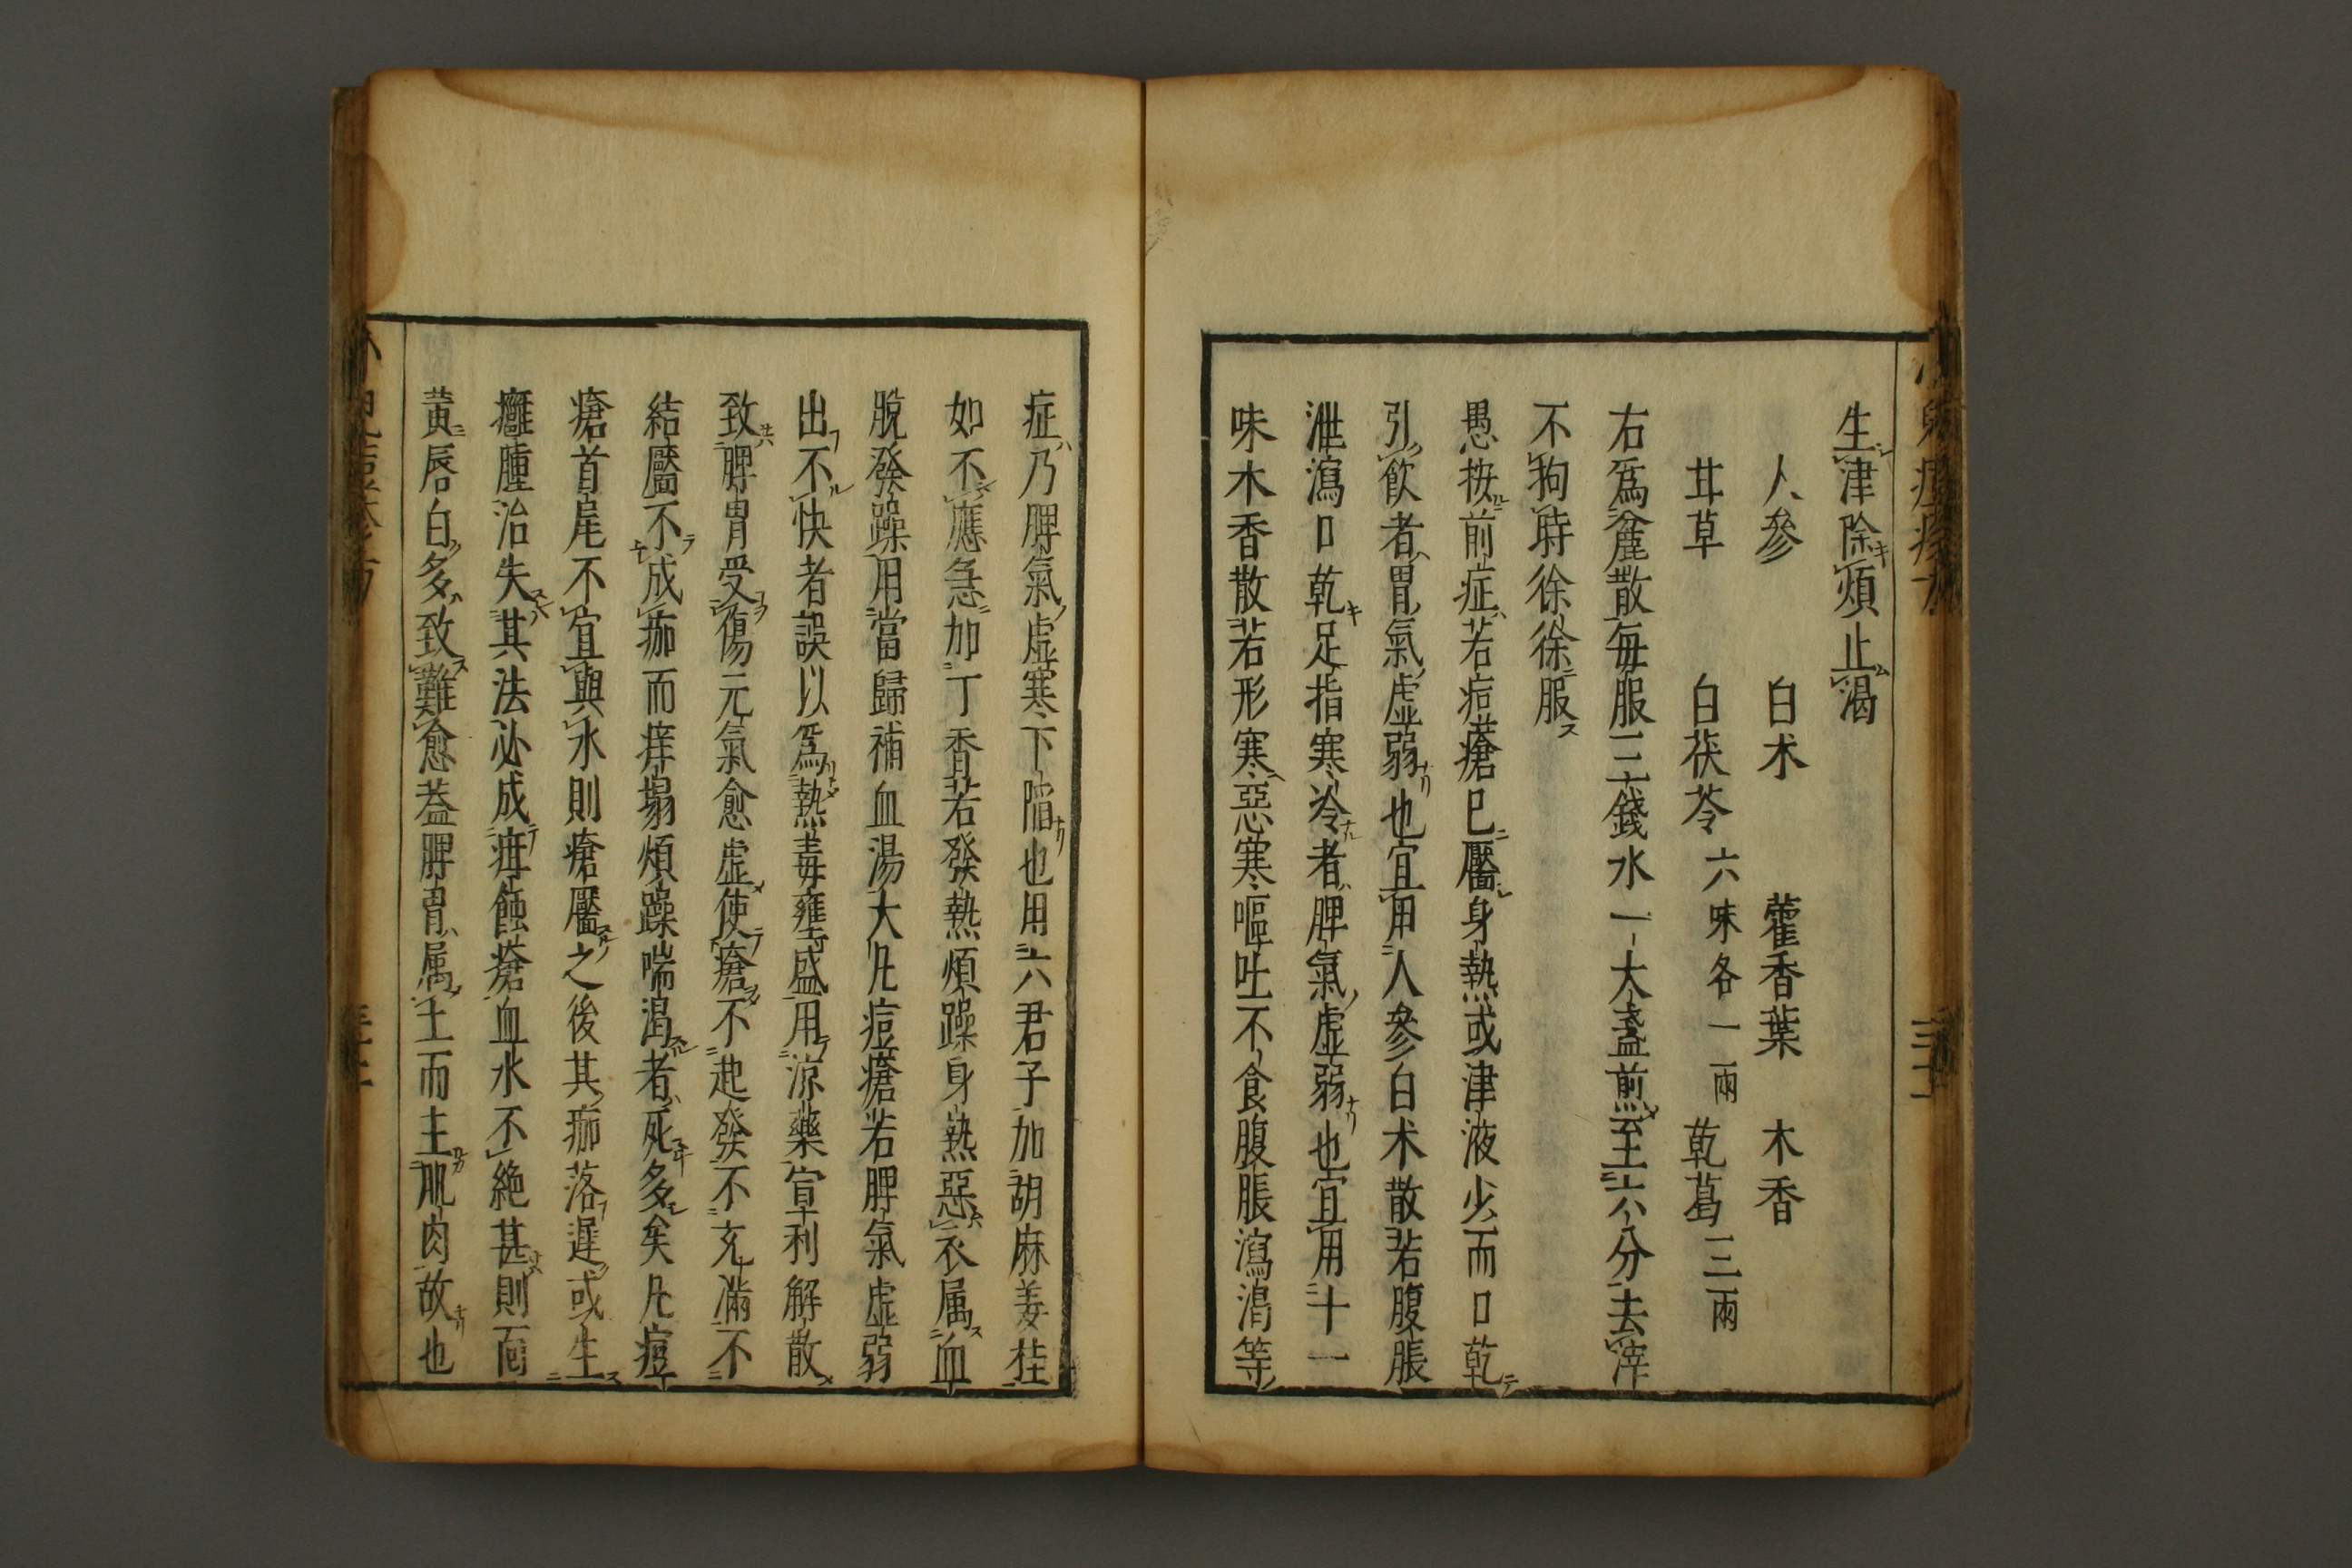 生津除煩止渴
人參 白朮 藿香葉 木香
甘草 白茯苓六味各一兩 乾葛三兩
右爲麄散每服三錢水一大盞煎至六分去滓
不拘時徐徐服
愚按前症若痘瘡已靨身熱或津液少而口乾
引飲者胃氣虛弱也宜用人參白朮散若腹脹
泄瀉口乾足指寒冷者脾氣虛弱也宜用十一
味木香散若形寒惡寒嘔吐不食腹脹瀉渴等
症乃脾氣虛寒下陷也用六君子加胡麻姜桂
如不應急加丁香若發熱煩躁身熱惡衣属血
脫發躁用當歸補血湯大凡痘瘡若脾氣虛弱
出不快者誤以爲熱毒壅盛用涼藥宣利解散
致脾胃受傷元氣愈虛使瘡不起發不充滿不
結靨不成痂而痒塌煩躁喘渴者死多矣凡痘
瘡首尾不宜與水則瘡靨之後其痂落遲或生
癰腫治失其法必成疳蝕瘡血水不絶甚則面
黃唇白多致難愈葢脾胃属土而主肌肉故也